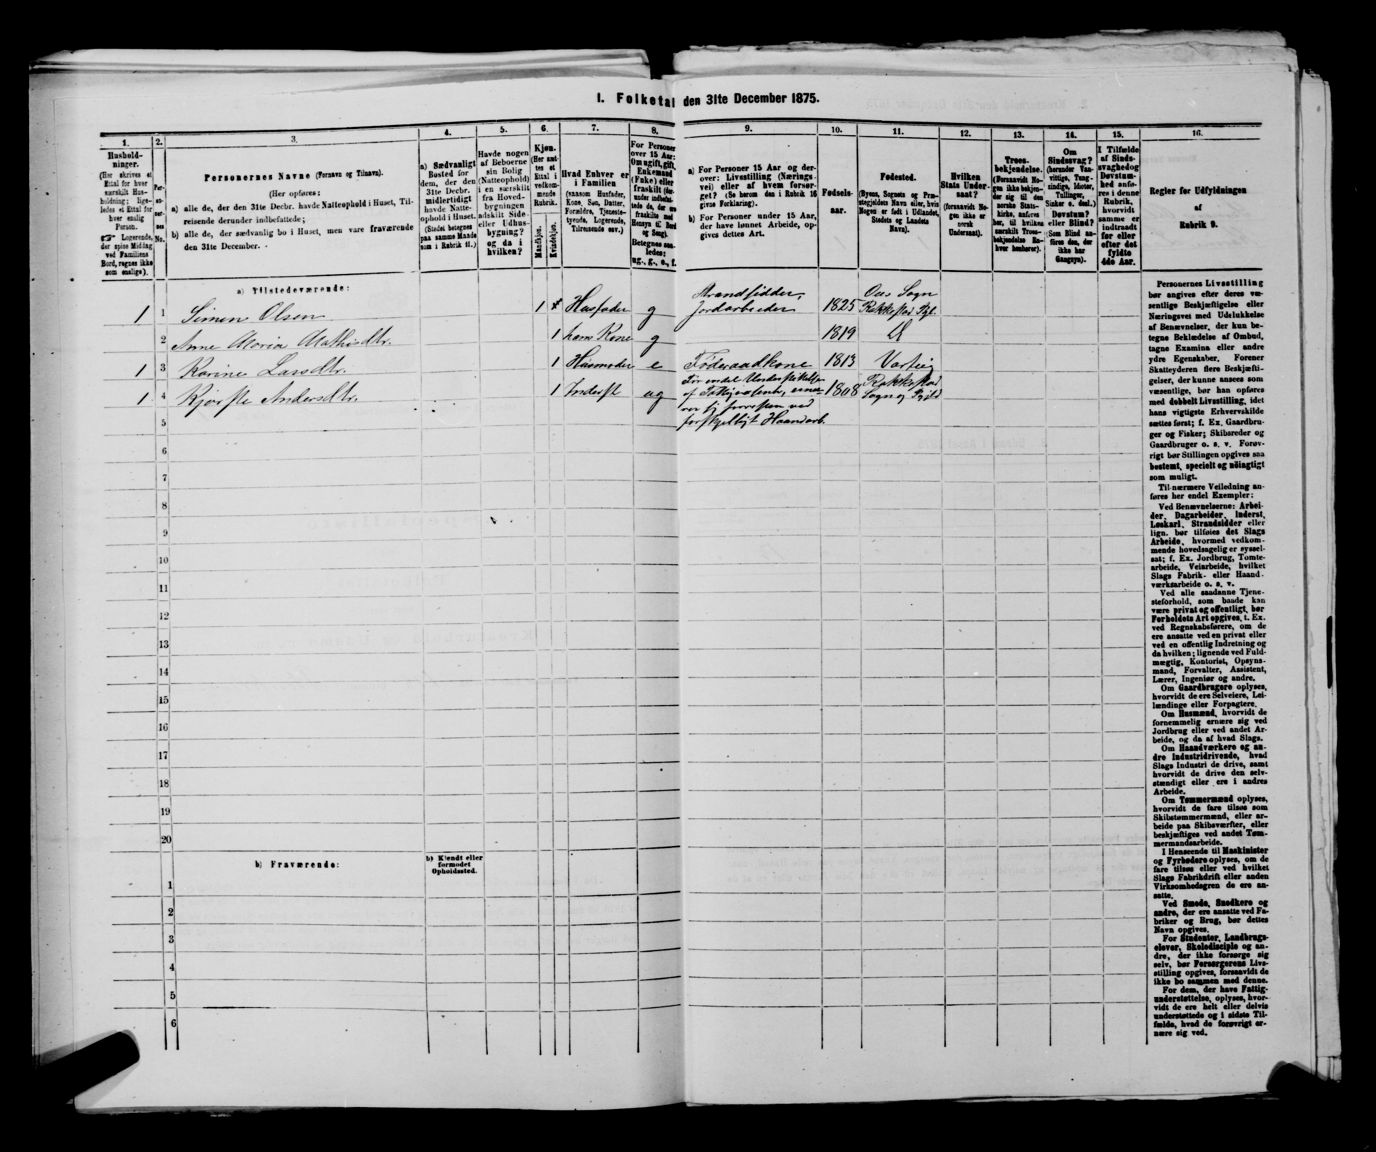 1. Folketal den 31te December 1875.
1.
Hushold-
ninger.
(Her skrives et
Ettal for hver
særskilt Hus-
holdning; lige-
ledes et Ettal for
hver enslig
Person.
☞ Logerende,
der spise Middag
ved Familiens
Bord, regnes ikke
som enslige).
2.
Per-
so-
ner-
nes
No.
3.
Personernes Navne (Fornavn og Tilnavn).
(Her opføres:
a) alle de, der den 31te Decbr. havde Natteophold i Huset, Til-
reisende derunder indbefattede;
b) alle de, der sædvanlig bo i Huset, men vare fraværende
den 31te December.
4.
a) Sædvanligt
Bosted for
dem, der den
31te Decbr.
midlertidigt
havde Natte-
ophold i Huset.
(Stedet betegnes
paa samme Maade
som i Rubrik 11.)
5.
Havde nogen
af Beboerne
sin Bolig
(Natteophold)
i en særskilt
fra Hoved-
bygningen
adskilt Side-
eller Udhus-
bygning?
og da i
hvilken?
6.
Kjøn.
(Her sæt-
tes et
Ettal i
vedkom-
mende
Rubrik.
Mandkjøn.
Kvindekjøn.
7.
Hvad Enhver er
i Familien
(saasom Husfader,
Kone, Søn, Datter,
Forældre, Tjeneste-
tyende, Logerende,
Tilreisende osv.)
8.
For Personer
over 15 Aar:
Om ugift, gift,
Enkemand
(Enke) eller
fraskilt (der-
under indbefat-
tede de, der ere
fraskilte med
Hensyn til Bord
og Seng).
Betegnes saa-
ledes:
ug., g., e., f.
9.
a) For Personer 15 Aar og der-
over: Livsstilling (Nærings-
vei) eller af hvem forsør-
get? (Se herom den i Rubrik 16
givne Forklaring).
b) For Personer under 15 Aar,
der have lønnet Arbeide, op-
gives dettes Art.
10.
Fødsels-
aar.
11.
Fødested.
(Byens, Sognets og Præ-
stegjeldets Navn eller, hvis
Nogen er født i Udlandet,
Stedets og Landets
Navn).
12.
Hvilken
Stats Under-
saat?
(forsaavidt No-
gen ikke er
norsk
Undersaat).
13.
Troes-
bekjendelse.
(Forsaavidt No-
gen ikke bekjen-
der sig til den
norske Stats-
kirke, anføres
her, til hvilken
særskilt Troes-
bekjendelse En-
hver henhører).
14.
Om
Sindssvag?
(herunder Van-
vittige, Tung-
sindige, Idioter,
Tullinger,
Sinker o. desl.)
Døvstum?
eller Blind?
(Som Blind an-
føres den, der
ikke har
Gangsyn).
15.
I Tilfælde
af Sinds-
svaghed og
Døvstum-
hed anfø-
res i denne
Rubrik,
hvorvidt
samme er
indtraadt
før eller
efter det
fyldte
4de Aar.
16.
Regler for Udfyldningen
af
Rubrik 9.
a) Tilstedeværende:
1 1 Simen Olsen 1 Husfader g Strandsidder, Jordarbeider 1825 Os Sogn Rakkestad Pgl.
2 Anne Maria Mathisdtr. 1 hans Kone g 1819
1 3 Karine Larsdtr. 1 Husmoder e Føderaadkone 1813 Varteig
1 4 Kjersti Andersdtr. 1 Inderst ug 1808 Rakkestad Sogn og Pgjld
5
6
7
8
9
10
11
12
13
14
15
16
17
18
19
20
b) Fraværende:
b) Kjendt eller
formodet
Opholdssted.
1
2
3
4
5
6
Personernes Livsstilling
bør angives efter deres væ-
sentlige Beskjæftigelse eller
Næringsvei med Udelukkelse
af Benævnelser, der kun be-
tegne Beklædelse af Ombud,
tagne Examina eller andre
ydre Egenskaber. Forener
Skatteyderen flere Beskjæfti-
gelser, der kunne ansees som
væsentlige, bør han opføres
med dobbelt Livsstilling, idet
hans vigtigste Erhvervskilde
sættes først; f. Ex. Gaardbru-
ger og Fisker; Skibsreder og
Gaardbruger o. s. v. Forøv-
rigt bør Stillingen opgives saa
bestemt, specielt og nöiagtigt
som muligt.
Til nærmere Veiledning an-
føres her endel Exempler:
Ved Benævnelserne: Arbei-
der, Dagarbeider, Inderst,
Løskarl, Strandsidder eller
lign. bør tilføies det Slags
Arbeide, hvormed vedkom-
mende hovedsagelig er syssel-
sat; f. Ex. Jordbrug, Tomte-
arbeide, Veiarbeide, hvilket
Slags Fabrik- eller Haand-
værksarbeide o. s. v.
Ved alle saadanne Tjene-
steforhold, som baade kan
være privat og offentligt, bør
Forholdets Art opgives, t. Ex.
ved Regnskabsførere, om de
ere ansatte ved en privat eller
ved en offentlig Indretning og
da hvilken; lignende ved Fuld-
mægtig, Kontorist, Opsyns-
mand, Forvalter, Assistent,
Lærer, Ingeniør og andre.
Om Gaardbrugere oplyses,
hvorvidt de ere Selveiere, Lei-
lændinge eller Forpagtere.
Om Husmænd, hvorvidt de
fornemmelig ernære sig ved
Jordbrug eller ved andet Ar-
beide, og da af hvad Slags.
Om Haandværkere og an-
dre Industridrivende, hvad
Slags Industri de drive, samt
hvorvidt de drive den selv-
stændigt eller ere i andres
Arbeide.
Om Tømmermænd oplyses,
hvorvidt de fare tilsøs som
Skibstømmermænd, eller ar-
beide paa Skibsværfter, eller
beskjæftiges ved andet Tøm-
mermandsarbeide.
I Henseende til Maskinister
og Fyrbødere oplyses, om de
fare tilsøs eller ved hvilket
Slags Fabrikdrift eller anden
Virksomhedsgren de ere an-
satte.
Ved Smede, Snedkere og
andre, der ere ansatte ved Fa-
briker og Brug, bør dettes
Navn opgives.
For Studenter, Landbrugs-
elever, Skoledisciple og an-
dre, der ikke forsørge sig
selv, bør Forsørgerens Livs-
stilling opgives, forsaavidt de
ikke bo sammen med denne.
For dem, der have Fattig-
understøttelse, oplyses, hvor-
vidt de ere helt eller delvis
understøttede og i sidste Til-
fælde, hvad de forøvrigt er-
nære sig ved.